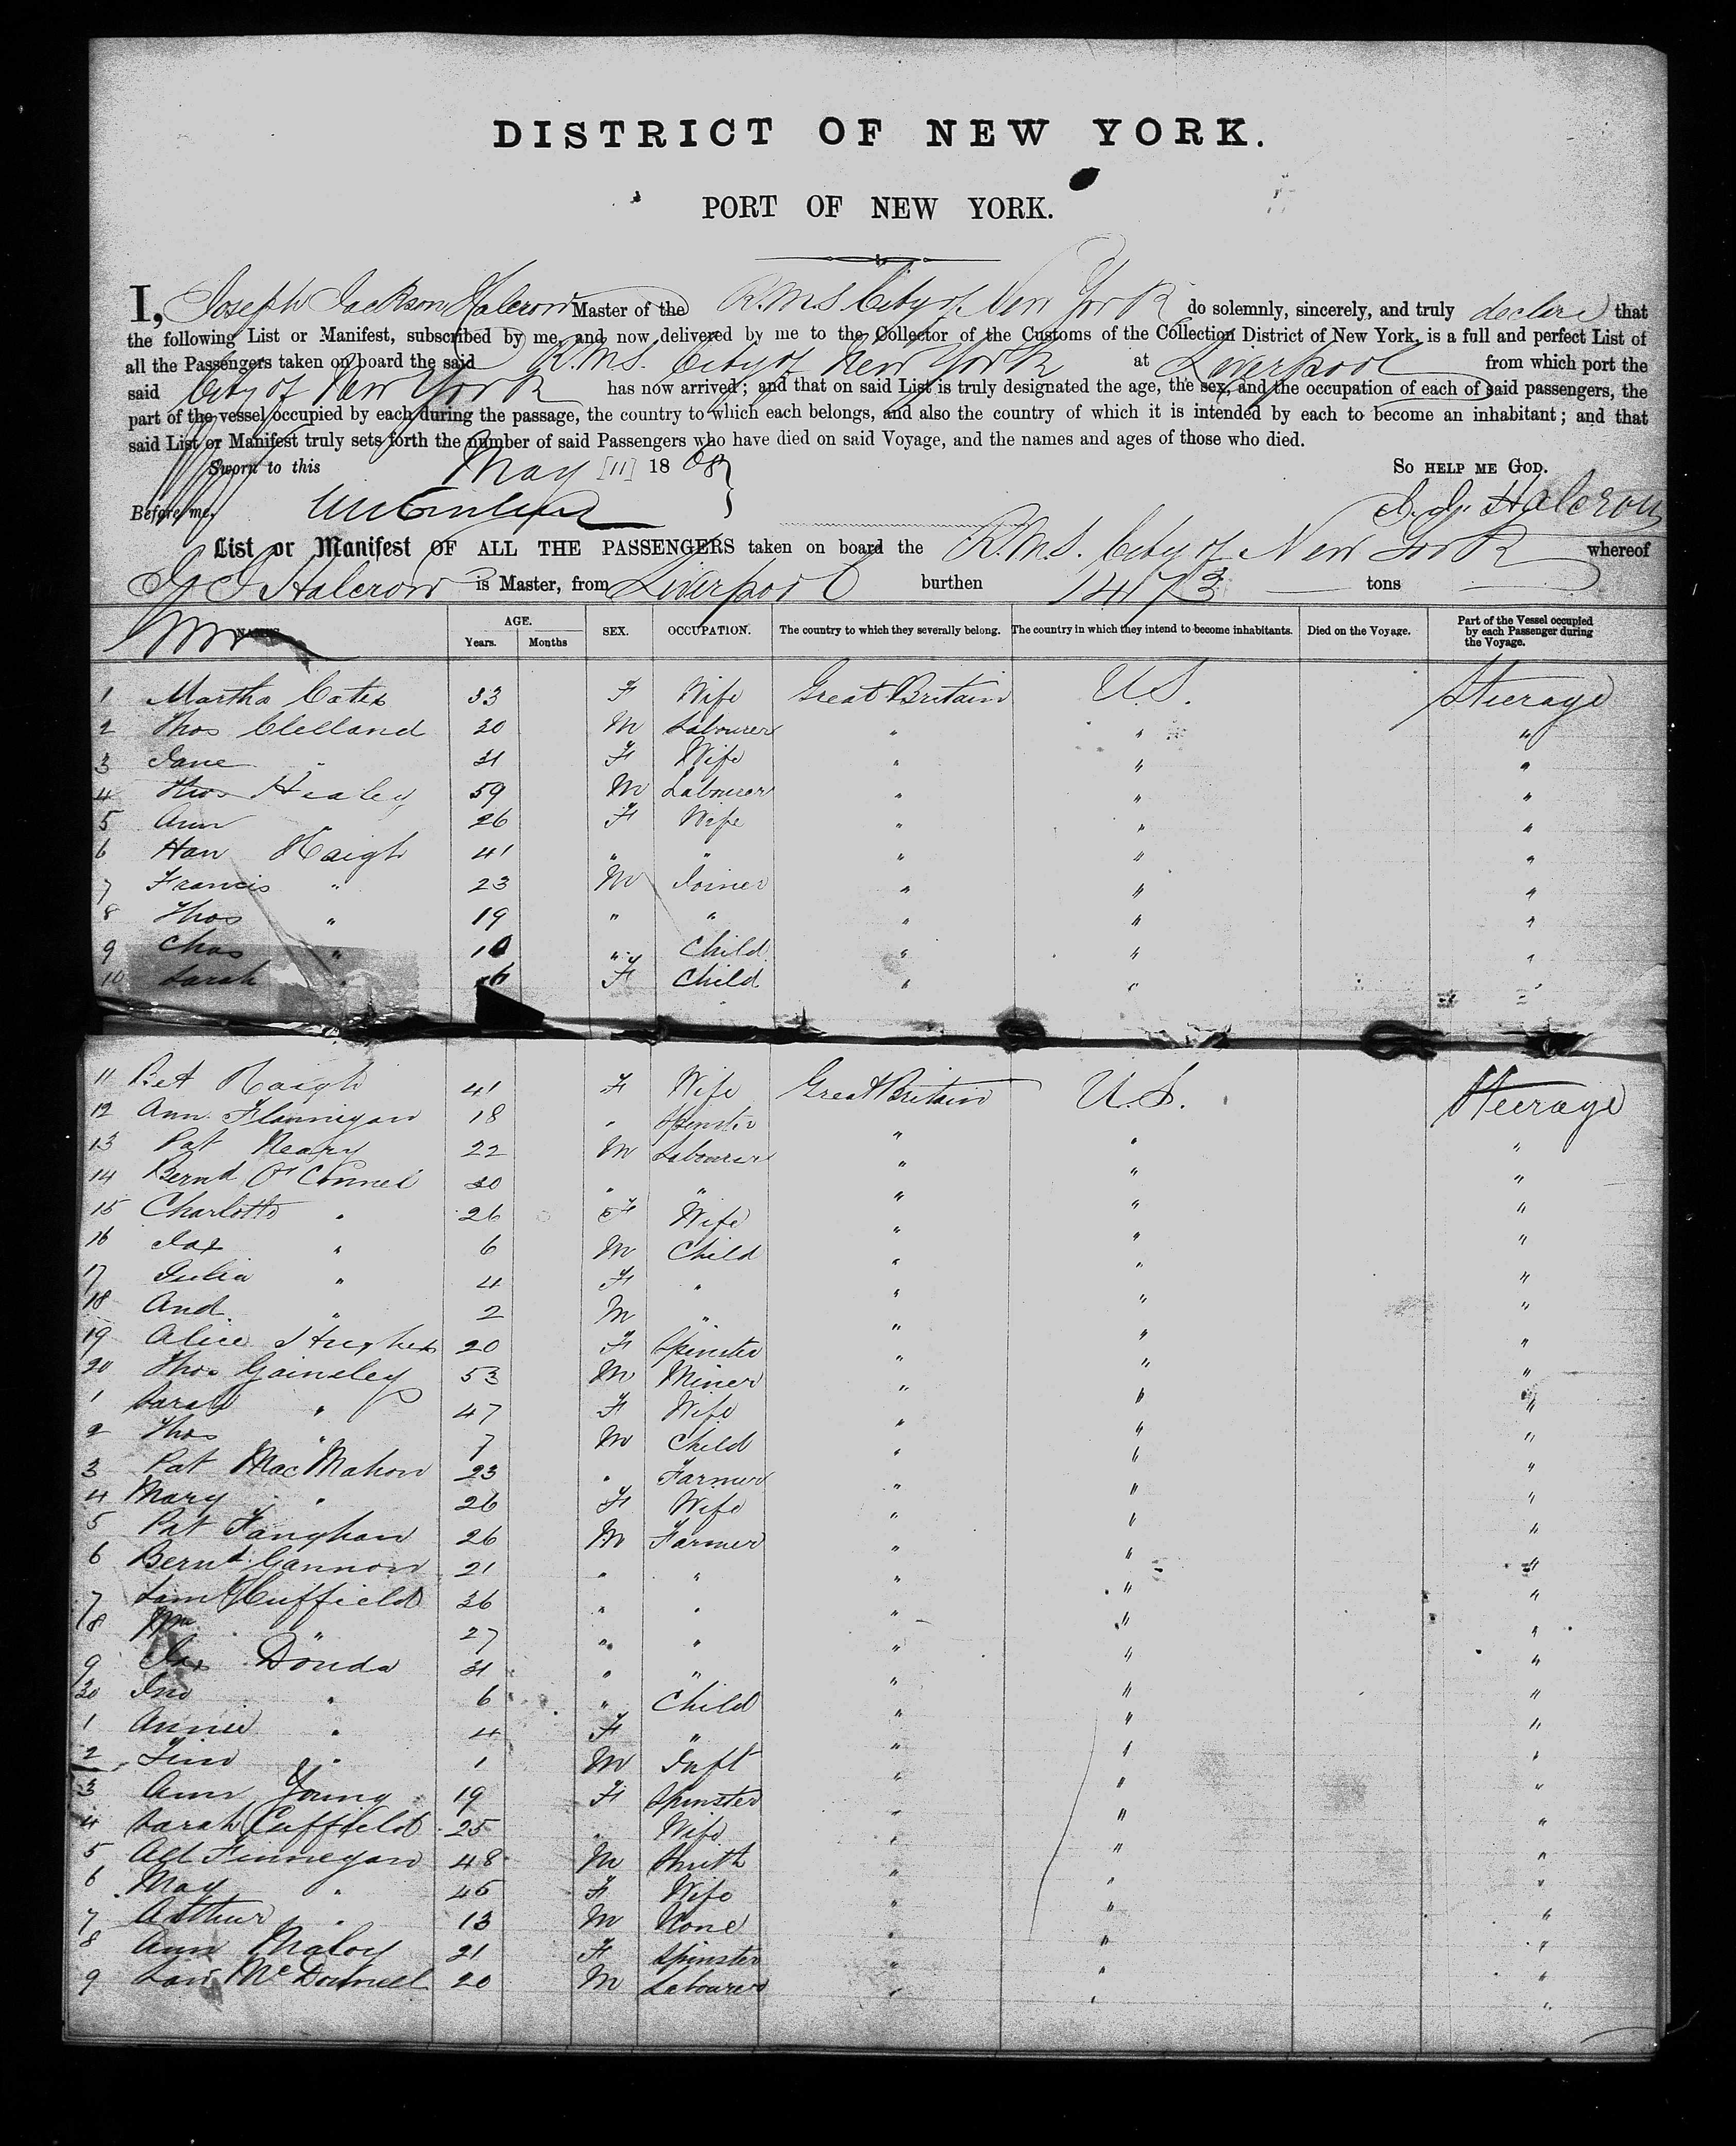 DISTRICT OF NEW YORK.
PORT OF NEW YORK.
I, Joseph Jackson Halcrow Master of the R.M.S City of New York do solemnly, sincerely, and truly declare that
the following List or Manifest, subscribed by me, and now delivered by me to the Collector of the Customs of the Collection District of New York, is a full and perfect List of
all the Passengers taken on board the said R.M.S. City of New York at Liverpool from which port the
said City of New York has now arrived; and that on said List is truly designated the age, the sex, and the occupation of each of said passengers, the
part of the vessel occupied by each during the passage, the country to which each belongs, and also the country of which it is intended by each to become an inhabitant; and that
said List or Manifest truly sets forth the number of said Passengers who have died on said Voyage, and the names and ages of those who died.
Sworn to this May [11] 1868 SO HELP ME GOD.
Before me, J. J. Halcrow
List or Manifest OF ALL THE PASSENGERS taken on board the R.M.S. City of New York whereof
J J Halcrow is Master, from Liverpool burthen 1473 tons
NAMES AGE. Years. Months SEX. OCCUPATION. The country to which they severally belong. The country in which they intend to become inhabitants. Died on the Voyage. Part of the Vessel occupied by each Passenger during the Voyage.
1 Martha Cates 33 F Wife Great Britain U.S. Steerage
2 Thos Clelland 30 M Labourer " " "
3 Jane " 31 F Wife " " "
4 Thos Healey 59 M Labourer " " "
5 Ann 26 F Wife " " "
6 Han Haigh 41 " " " " "
7 Francis " 23 M Joiner " " "
8 Thos " 19 " " " " "
9 Chas " 10 " Child " " "
10 Sarah " 6 F Child " " "
11 Bet Haigh 41 F Wife Great Britain U.S. Steerage
12 Ann Flannigan 18 " Spinster " " "
13 Pat Neary 22 M Labourer " " "
14 Bernd O'Connel 30 " " " " "
15 Charlotte " 26 F Wife " " "
16 Jas " 6 M Child " " "
17 Julia " 4 F " " " "
18 And " 2 M " " " "
19 Alice Hughes 20 F Spinster " " "
20 Thos Gainsley 53 M Miner " " "
1 Sarah " 47 F Wife " " "
2 Thos " 7 M Child " " "
3 Pat MacMahon 23 " Farmer " " "
4 Mary " 26 F Wife " " "
5 Pat Fanghan 26 M Farmer " " "
6 Bernd Gannon 21 " " " " "
7 Saml Cuffield 36 " " " " "
8 Wm " 27 " " " " "
9 Jas Donda 31 " " " " "
30 Jno " 6 " Child " " "
1 Annie " 4 F " " " "
2 Tim " 1 M Inft " " "
3 Ann Young 19 F Spinster " " "
4 Sarah Cuffield 25 " Wife " " "
5 Ad Finnegan 48 M Smith " " "
6 May " 45 F Wife " " "
7 Arthur " 13 M None " " "
8 Ann Maloy 21 F Spinster " " "
9 Law McDonnell 20 M Labourer " " "